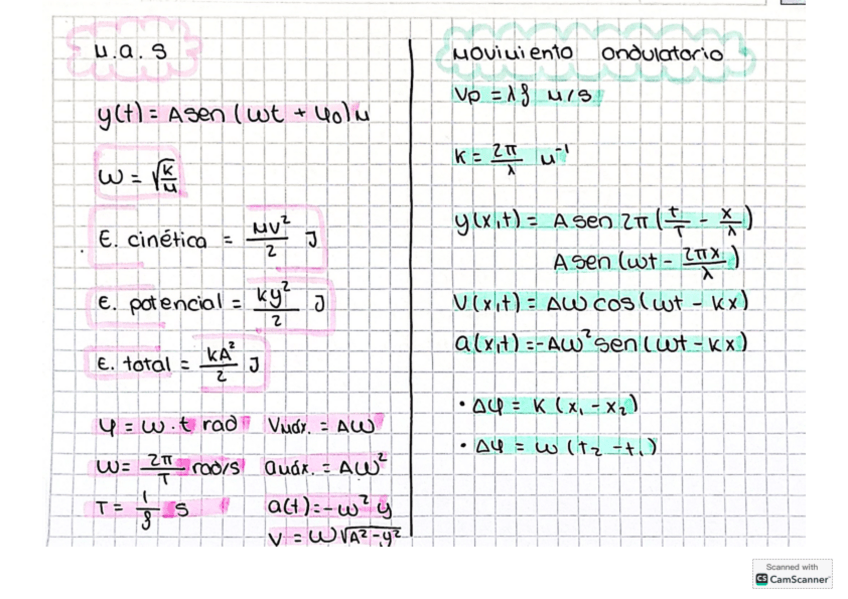 M.a.s
y(t) = A sen (ωt + φ0) m
ω = √(k/m)
E. cinética = mv²/2 J
E. potencial = ky²/2 J
E. total = kA²/2 J
φ = ω · t rad
ω = 2π/T rad/s
T = 1/f s
Vmáx. = Aω
amáx. = Aω²
a(t) = -ω² y
v = ω√(A² - y²)
Movimiento ondulatorio
Vp = λf m/s
K = 2π/λ m⁻¹
y(x,t) = A sen 2π (t/T - x/λ)
A sen (ωt - 2πx/λ)
V(x,t) = Aω cos (ωt - kx)
a(x,t) = -Aω² sen (ωt - kx)
• Δφ = K (x₁ - x₂)
• Δφ = ω (t₂ - t₁)
Scanned with
CS CamScanner